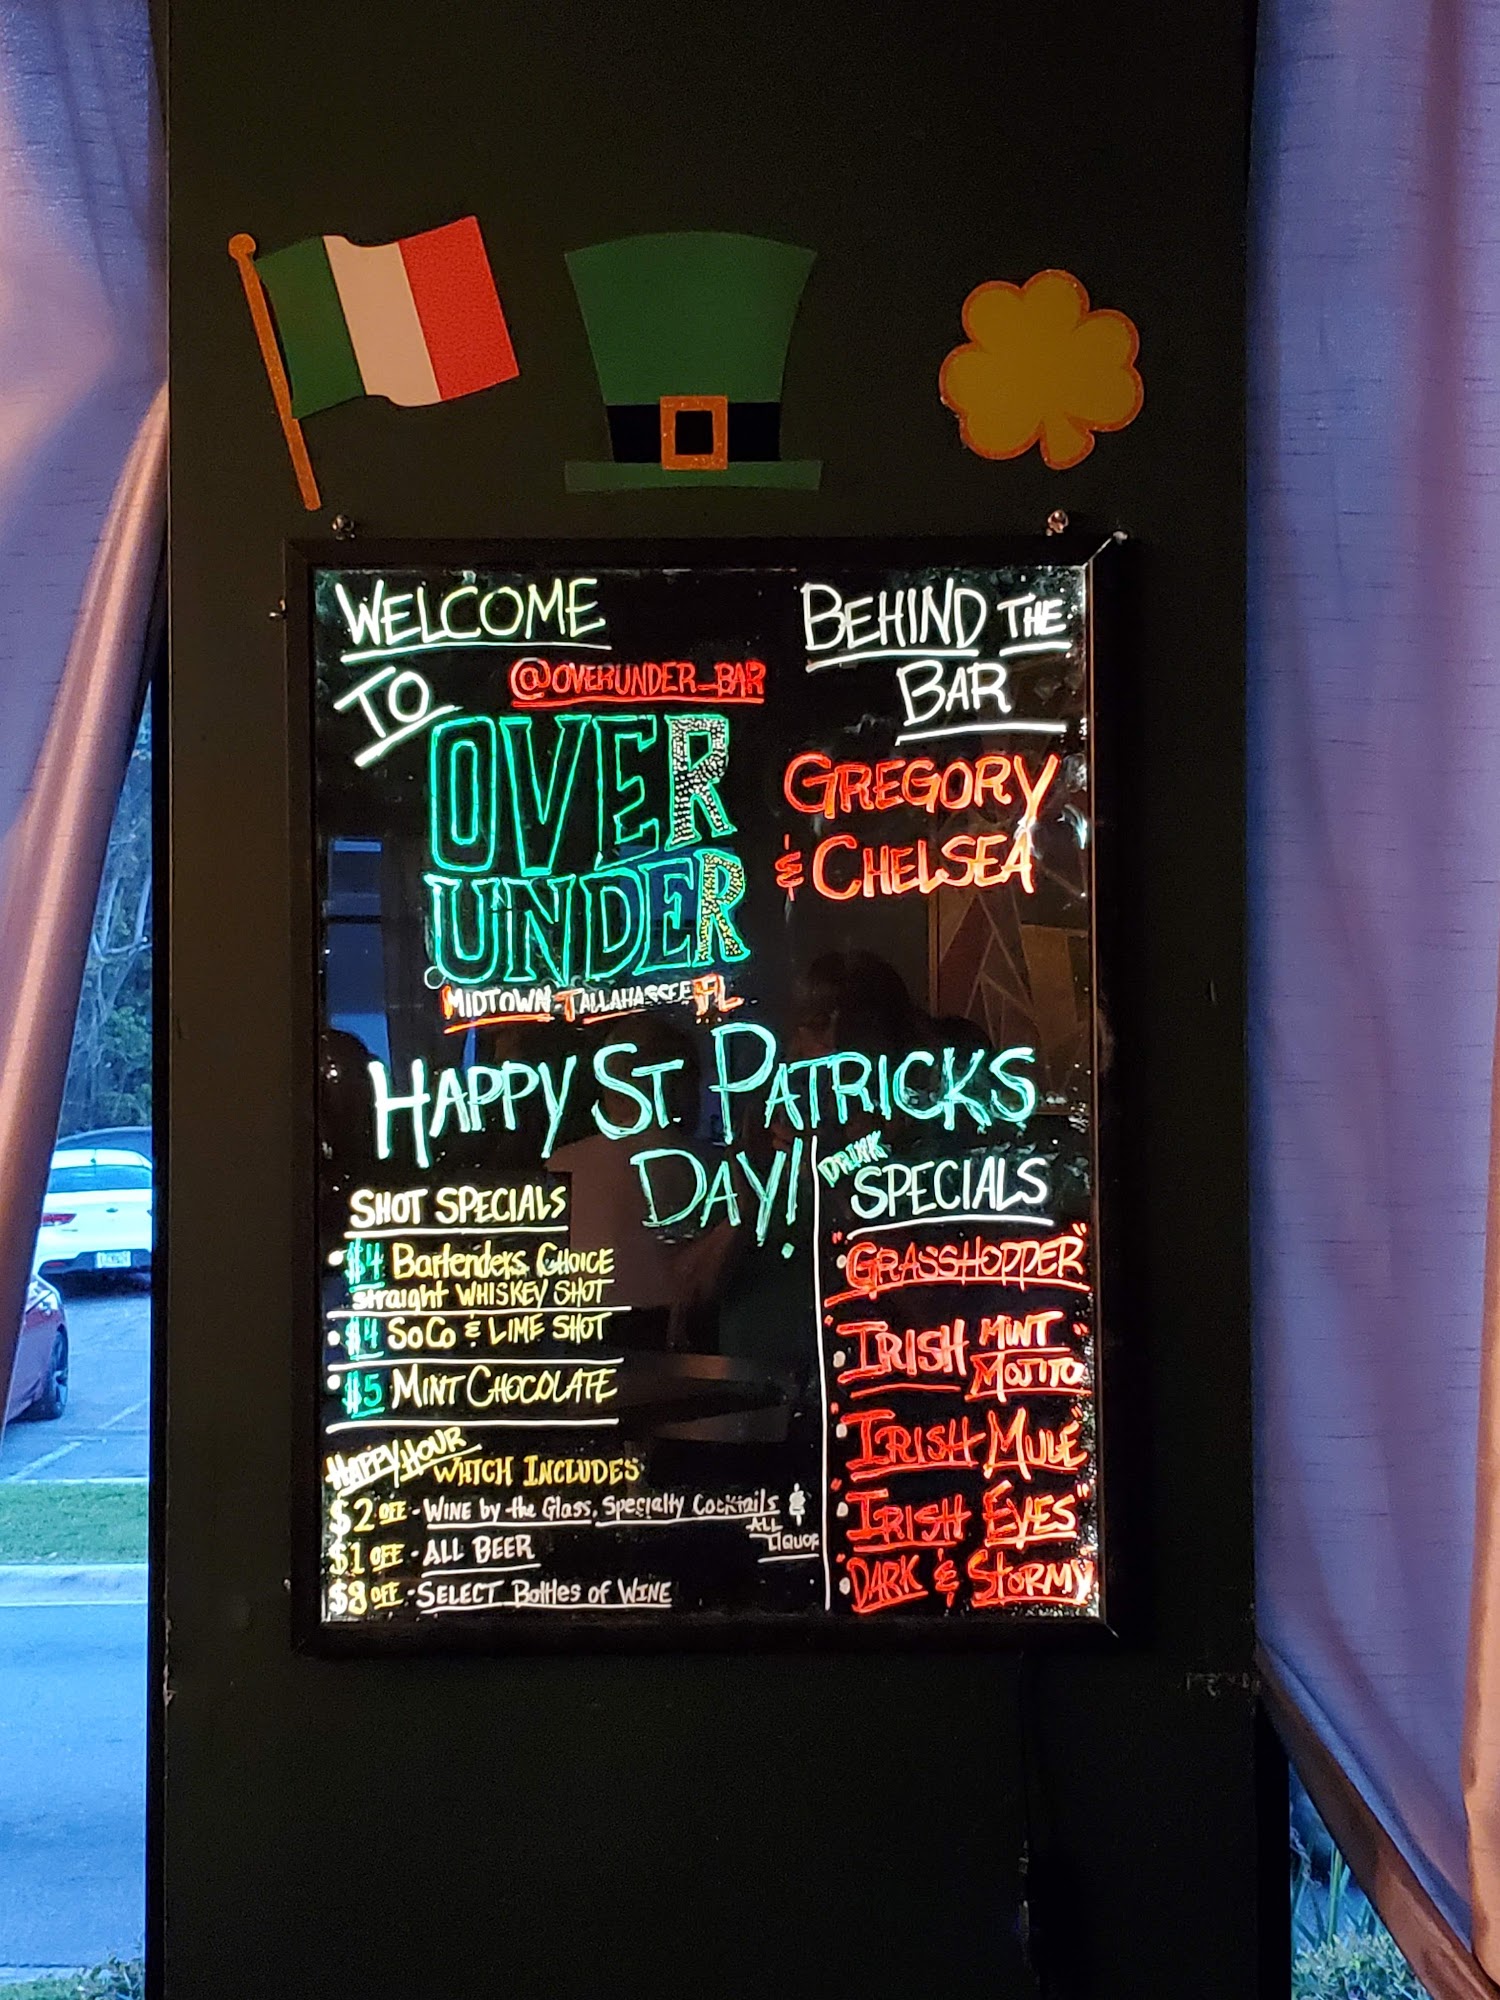 WELCOME
TO
@OVERUNDER_BAR
OVER
UNDER
MIDTOWN-TALLAHASSEE FL
BEHIND THE
BAR
GREGORY
& CHELSEA
HAPPY ST. PATRICKS
DAY!
SHOT SPECIALS
• $4 Bartenders CHOICE
straight WHISKEY SHOT
• $4 SoCo & LIME SHOT
• $5 MINT CHOCOLATE
HAPPY HOUR
WHICH INCLUDES
$2 OFF - WINE by the Glass, Specialty Cocktails &
ALL
LIQUOR
$1 OFF - ALL BEER
$8 OFF - SELECT Bottles of WINE
DRINK
SPECIALS
• "GRASSHOPPER"
• "IRISH MINT
MOJITO"
• "IRISH MULE"
• "IRISH EYES"
• "DARK & STORMY"